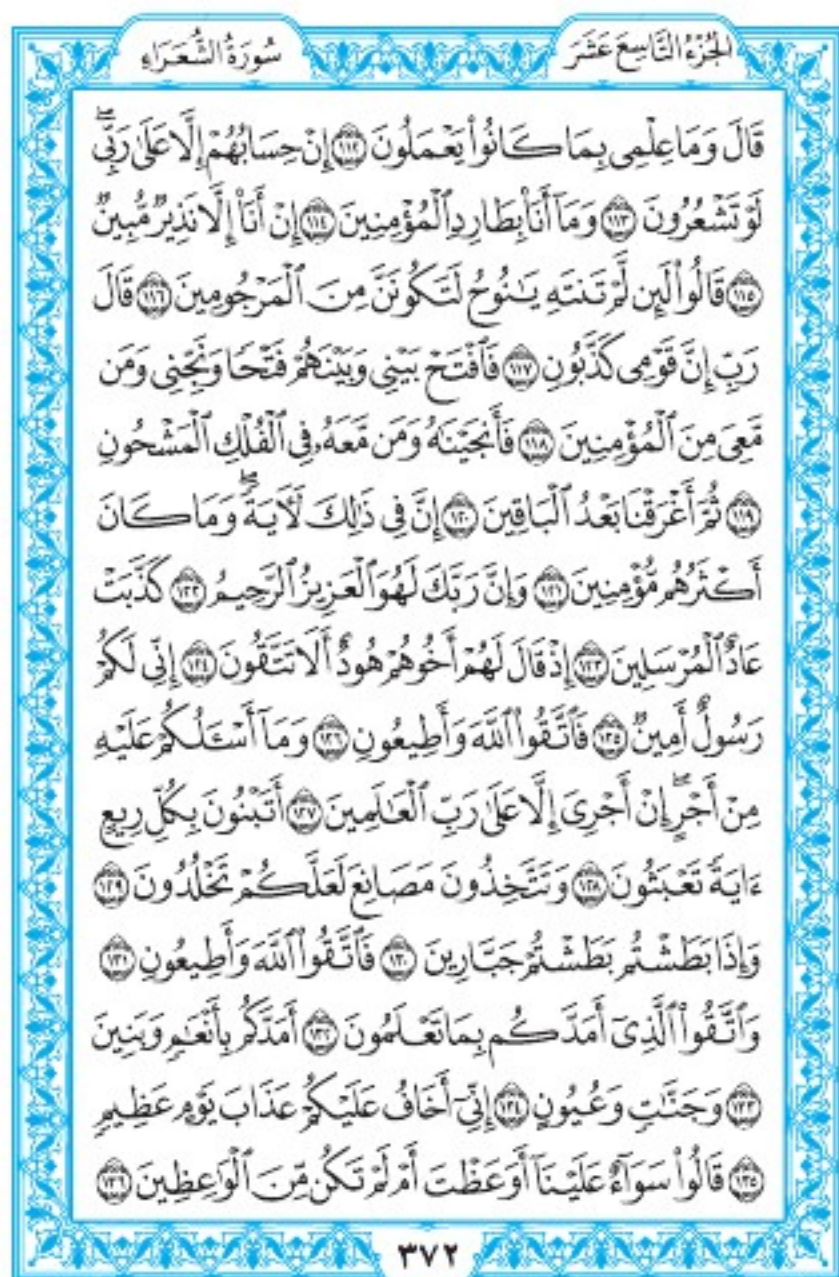 الجُزْءُ التَّاسِعَ عَشَرَ
سُورَةُ الشُّعَرَاءِ
قَالَ وَمَا عِلْمِي بِمَا كَانُواْ يَعْمَلُونَ ١١٢ إِنْ حِسَابُهُمْ إِلَّا عَلَىٰ رَبِّيۖ
لَوْ تَشْعُرُونَ ١١٣ وَمَآ أَنَا۠ بِطَارِدِ ٱلْمُؤْمِنِينَ ١١٤ إِنْ أَنَا۠ إِلَّا نَذِيرٞ مُّبِينٞ
١١٥ قَالُواْ لَئِن لَّمْ تَنتَهِ يَٰنُوحُ لَتَكُونَنَّ مِنَ ٱلْمَرْجُومِينَ ١١٦ قَالَ
رَبِّ إِنَّ قَوْمِي كَذَّبُونِ ١١٧ فَٱفْتَحْ بَيْنِي وَبَيْنَهُمْ فَتْحٗا وَنَجِّنِي وَمَن
مَّعِيَ مِنَ ٱلْمُؤْمِنِينَ ١١٨ فَأَنجَيْنَٰهُ وَمَن مَّعَهُۥ فِي ٱلْفُلْكِ ٱلْمَشْحُونِ
١١٩ ثُمَّ أَغْرَقْنَا بَعْدُ ٱلْبَاقِينَ ١٢٠ إِنَّ فِي ذَٰلِكَ لَأٓيَةٗۖ وَمَا كَانَ
أَكْثَرُهُم مُّؤْمِنِينَ ١٢١ وَإِنَّ رَبَّكَ لَهُوَ ٱلْعَزِيزُ ٱلرَّحِيمُ ١٢٢ كَذَّبَتْ
عَادٌ ٱلْمُرْسَلِينَ ١٢٣ إِذْ قَالَ لَهُمْ أَخُوهُمْ هُودٌ أَلَا تَتَّقُونَ ١٢٤ إِنِّي لَكُمْ
رَسُولٌ أَمِينٞ ١٢٥ فَٱتَّقُواْ ٱللَّهَ وَأَطِيعُونِ ١٢٦ وَمَآ أَسْـَٔلُكُمْ عَلَيْهِ
مِنْ أَجْرٍۖ إِنْ أَجْرِيَ إِلَّا عَلَىٰ رَبِّ ٱلْعَٰلَمِينَ ١٢٧ أَتَبْنُونَ بِكُلِّ رِيعٍ
ءَايَةٗ تَعْبَثُونَ ١٢٨ وَتَتَّخِذُونَ مَصَانِعَ لَعَلَّكُمْ تَخْلُدُونَ ١٢٩
وَإِذَا بَطَشْتُم بَطَشْتُمْ جَبَّارِينَ ١٣٠ فَٱتَّقُواْ ٱللَّهَ وَأَطِيعُونِ ١٣١
وَٱتَّقُواْ ٱلَّذِيٓ أَمَدَّكُم بِمَا تَعْلَمُونَ ١٣٢ أَمَدَّكُم بِأَنْعَٰمٖ وَبَنِينَ
١٣٣ وَجَنَّٰتٖ وَعُيُونٍ ١٣٤ إِنِّيٓ أَخَافُ عَلَيْكُمْ عَذَابَ يَوْمٍ عَظِيمٖ
١٣٥ قَالُواْ سَوَآءٌ عَلَيْنَآ أَوَعَظْتَ أَمْ لَمْ تَكُن مِّنَ ٱلْوَٰعِظِينَ ١٣٦
٣٧٢